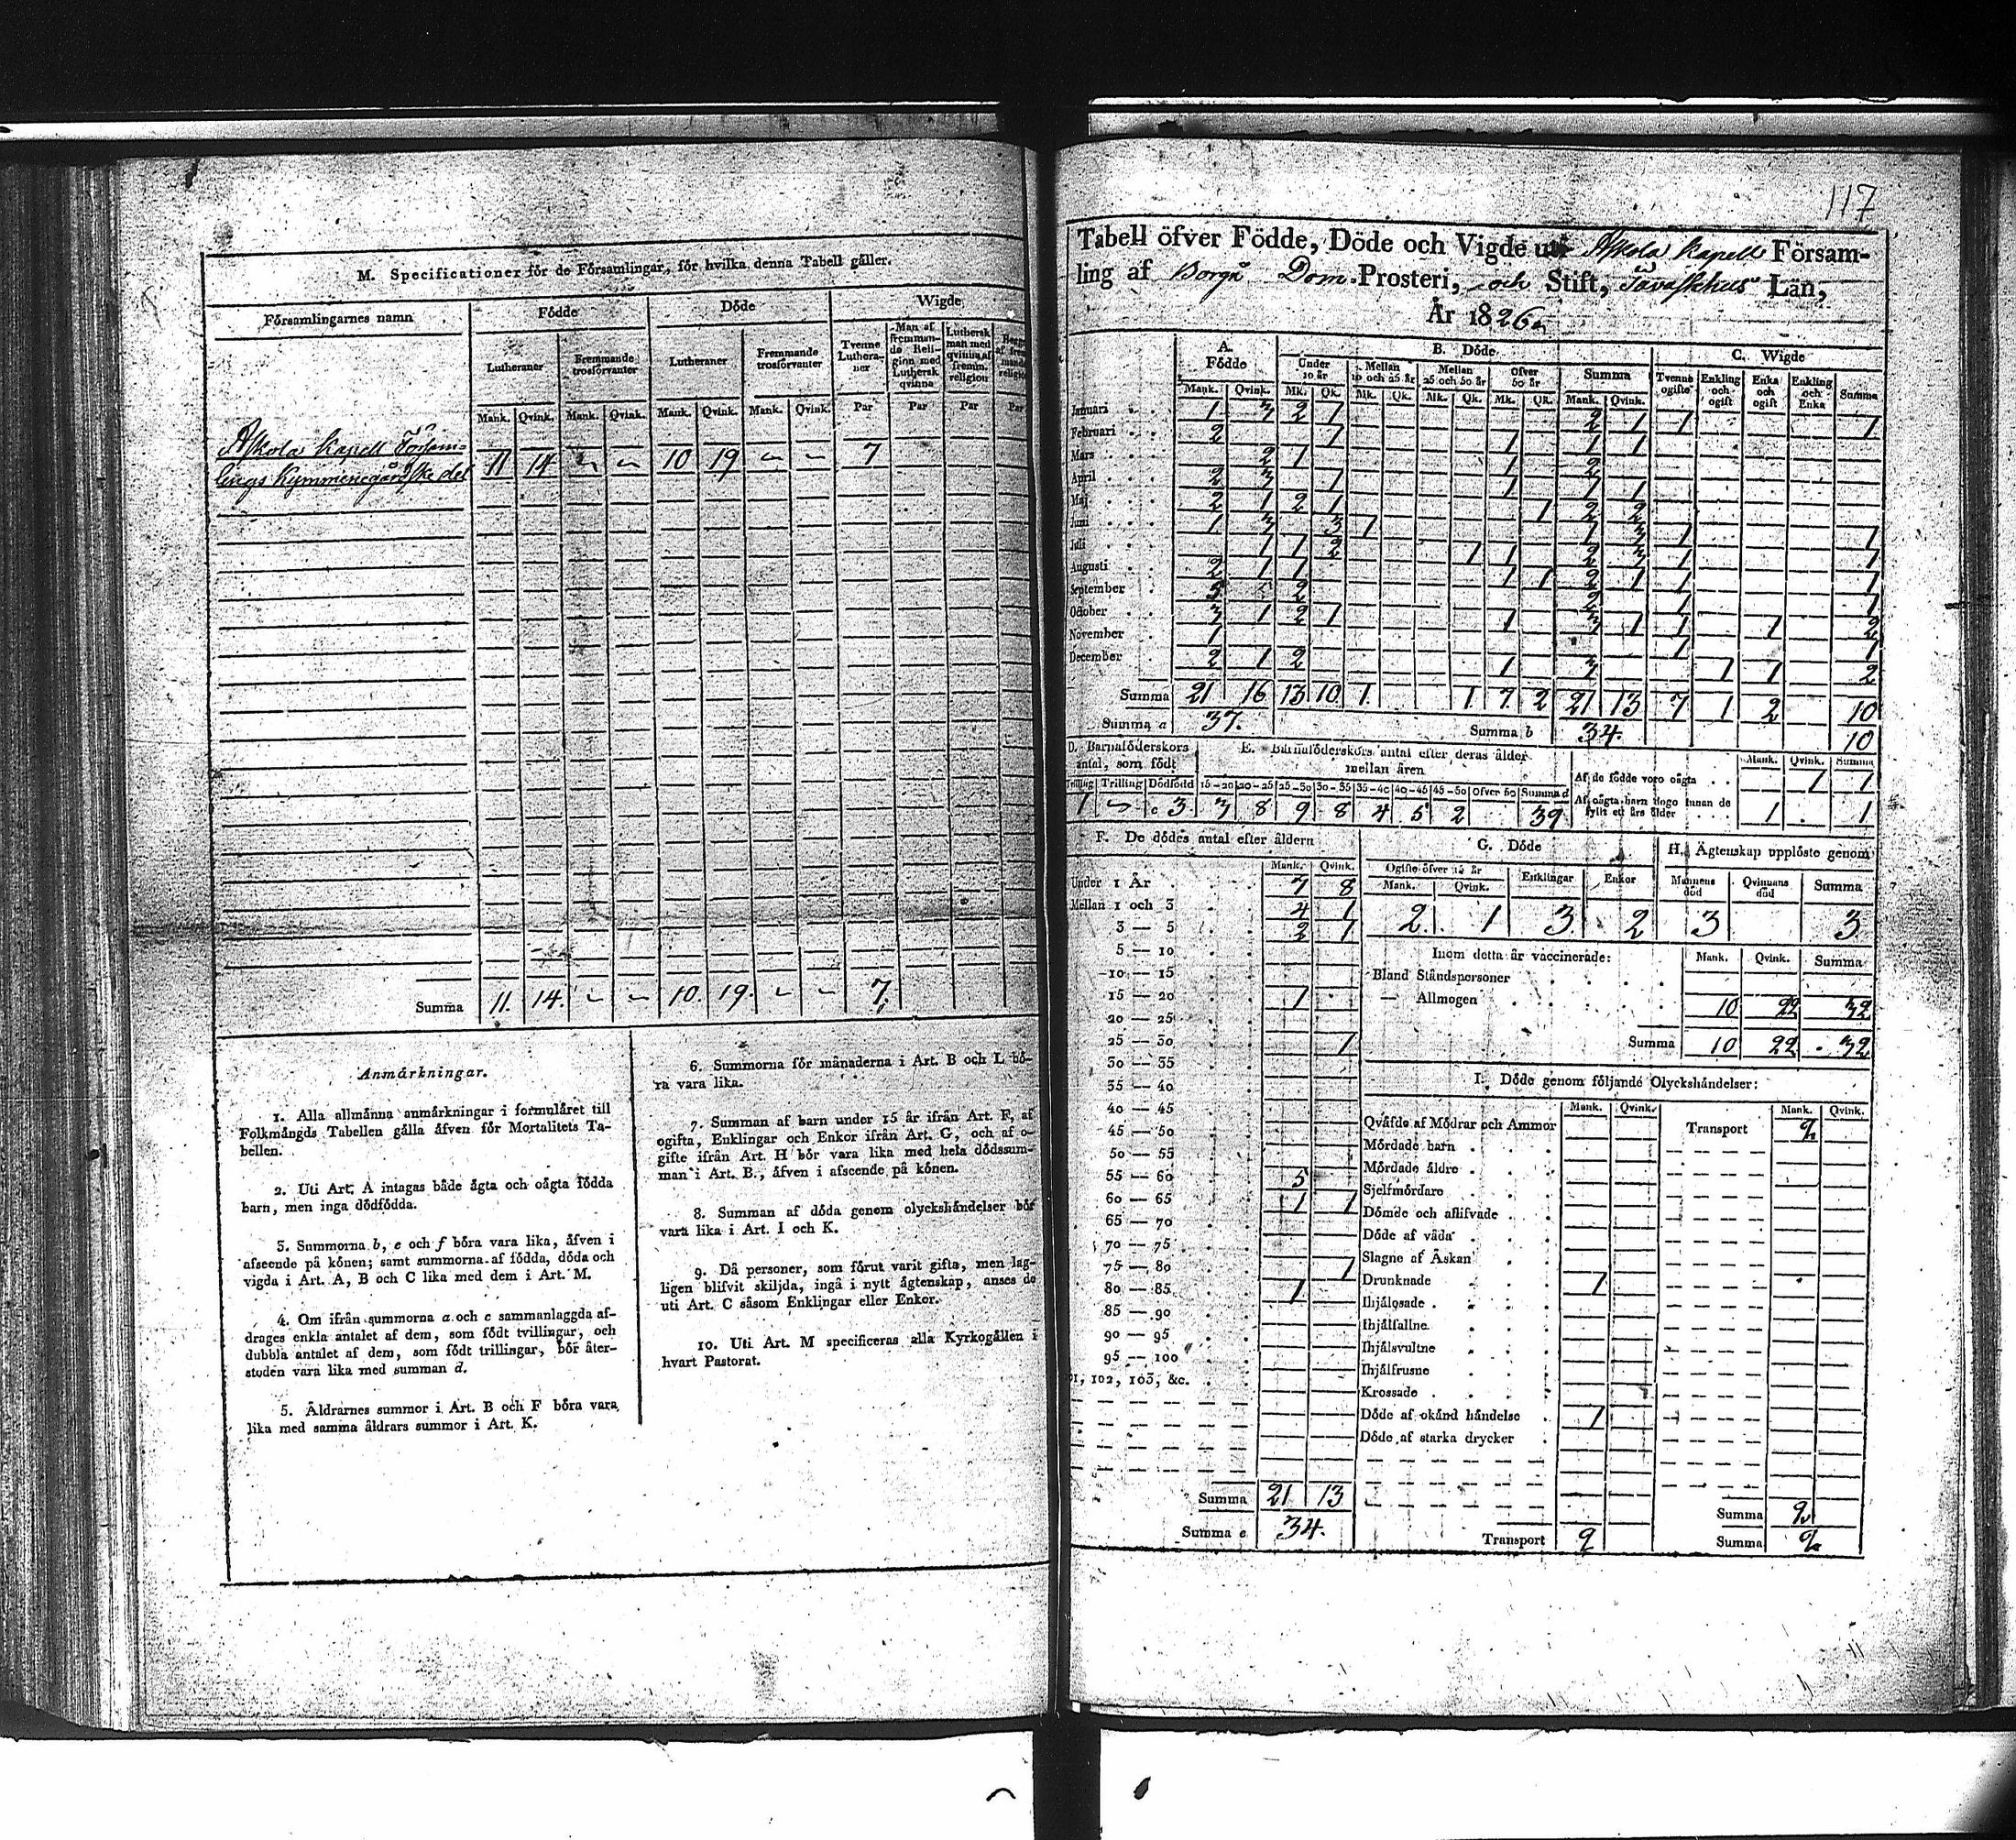 M. Specificationer för de Församlingar, för hvilka denna Tabell gäller.
Församlingarnes namn Födde Döde Wigde
Lutheraner Fremmande trosförvanter Lutheraner Fremmande trosförvanter Tvenne Lutheraner Man af fremmande Religion med Luthersk qvinna Luthersk man med qvinna af fremm. religion
Mank. Qvink. Mank. Qvink. Mank. Qvink. Mank. Qvink. Par Par Par Par
Askola Kapell Försam-
lings Kymmenegårdske del 11 14 ~ ~ 10 19 ~ ~ 7
Summa 11. 14. ~ ~ 10. 19. ~ ~ 7.
Anmärkningar.
1. Alla allmänna anmärkningar i formuläret till
Folkmängds Tabellen gälla äfven för Mortalitets Ta-
bellen.
2. Uti Art. A intagas både ägta och oägta födda
barn, men inga dödfödda.
3. Summorna b, e och f böra vara lika, äfven i
afseende på könen; samt summorna af födda, döda och
vigda i Art. A, B och C lika med dem i Art. M.
4. Om ifrån summorna a och c sammanlaggda af-
drages enkla antalet af dem, som födt tvillingar, och
dubbla antalet af dem, som födt trillingar, bör åter-
stoden vara lika med summan d.
5. Åldrarnes summor i Art. B och F böra vara
lika med samma åldrars summor i Art. K.
6. Summorna för månaderna i Art. B och L bö-
ra vara lika.
7. Summan af barn under 15 år ifrån Art. F, af
ogifta, Enklingar och Enkor ifrån Art. G, och af o-
gifte ifrån Art. H bör vara lika med hela dödssum-
man i Art. B., äfven i afseende på könen.
8. Summan af döda genom olyckshändelser bör
vara lika i Art. I och K.
9. Då personer, som förut varit gifta, men lag-
ligen blifvit skiljda, ingå i nytt ägtenskap, anses de
uti Art. C såsom Enklingar eller Enkor.
10. Uti Art. M specificeras alla Kyrkogällen i
hvart Pastorat.
117
Tabell öfver Födde, Döde och Vigde uti Askola Kapells Försam-
ling af Borgå Dom-Prosteri, och Stift, Tavastehus Län,
År 1826.
A. Födde B. Döde C. Wigde
Under 10 år Mellan 10 och 25 år Mellan 25 och 50 år Öfver 50 år Summa Tvenne ogifte Enkling och ogift Enka och ogift Enkling och Enka Summa
Mank. Qvink. Mk. Qk. Mk. Qk. Mk. Qk. Mk. Qk. Mank. Qvink.
Januari 1 3 2 1 2 1 1 1
Februari 2 1 1 1 1
Mars 2 1 1 2
April 2 3 1 1 1 1
Maj 2 1 2 1 1 2 2
Juni 1 3 3 1 1 3 1 1
Juli 1 1 2 1 1 2 3 1 1
Augusti 2 1 1 1 1 2 1 1 1
September 5 2 2 1 1
October 3 1 2 1 1 3 1 1 1 2
November 1 1 1
December 2 1 2 1 3 1 1 2
Summa 21 16 13 10 1 1 7 2 21 13 7 1 2 10
Summa a 37. Summa b 34. 10
D. Barnaföderskors antal, som födt E. Barnaföderskors antal efter deras ålder mellan åren
Mank. Qvink. Summa
Tvilling Trilling Dödfödd 15-20 20-25 25-30 30-35 35-40 40-45 45-50 Öfver 50 Summa d
1 ~ 3 3 8 9 8 4 5 2 39
Af de födde voro oägta 1 1
Af oägta barn dogo innan de fyllt ett års ålder 1 . 1
F. De dödes antal efter åldern
Mank. Qvink.
Under 1 År 7 8
Mellan 1 och 3 4 1
3 — 5 2 1
5 — 10
10 — 15
15 — 20 1
20 — 25
25 — 30 1
30 — 35
35 — 40
40 — 45
45 — 50
50 — 55
55 — 60 5
60 — 65 1 1
65 — 70
70 — 75
75 — 80 1
80 — 85 1
85 — 90
90 — 95
95 — 100
102, 103, &c.
Summa 21 13
Summa e 34.
G. Döde H. Ägtenskap upplöste genom
Ogifte öfver 15 år Enklingar Enkor Mannens död Qvinnans död Summa
Mank. Qvink.
2 1 3 2 3 3
Inom detta år vaccinerade: Mank. Qvink. Summa
Bland Ståndspersoner
— Allmogen 10 22 32
Summa 10 22 32
I. Döde genom följande Olyckshändelser:
Mank. Qvink. Mank. Qvink.
Qväfde af Mödrar och Ammor Transport 2
Mördade barn
Mördade äldre
Sjelfmördare
Dömde och aflifvade
Döde af våda
Slagne af Åskan
Drunknade 1
Ihjälosade
Ihjälfallne
Ihjälsvultne
Ihjälfrusne
Krossade
Döde af okänd händelse 1
Döde af starka drycker
Summa 2
Transport 2 Summa 2